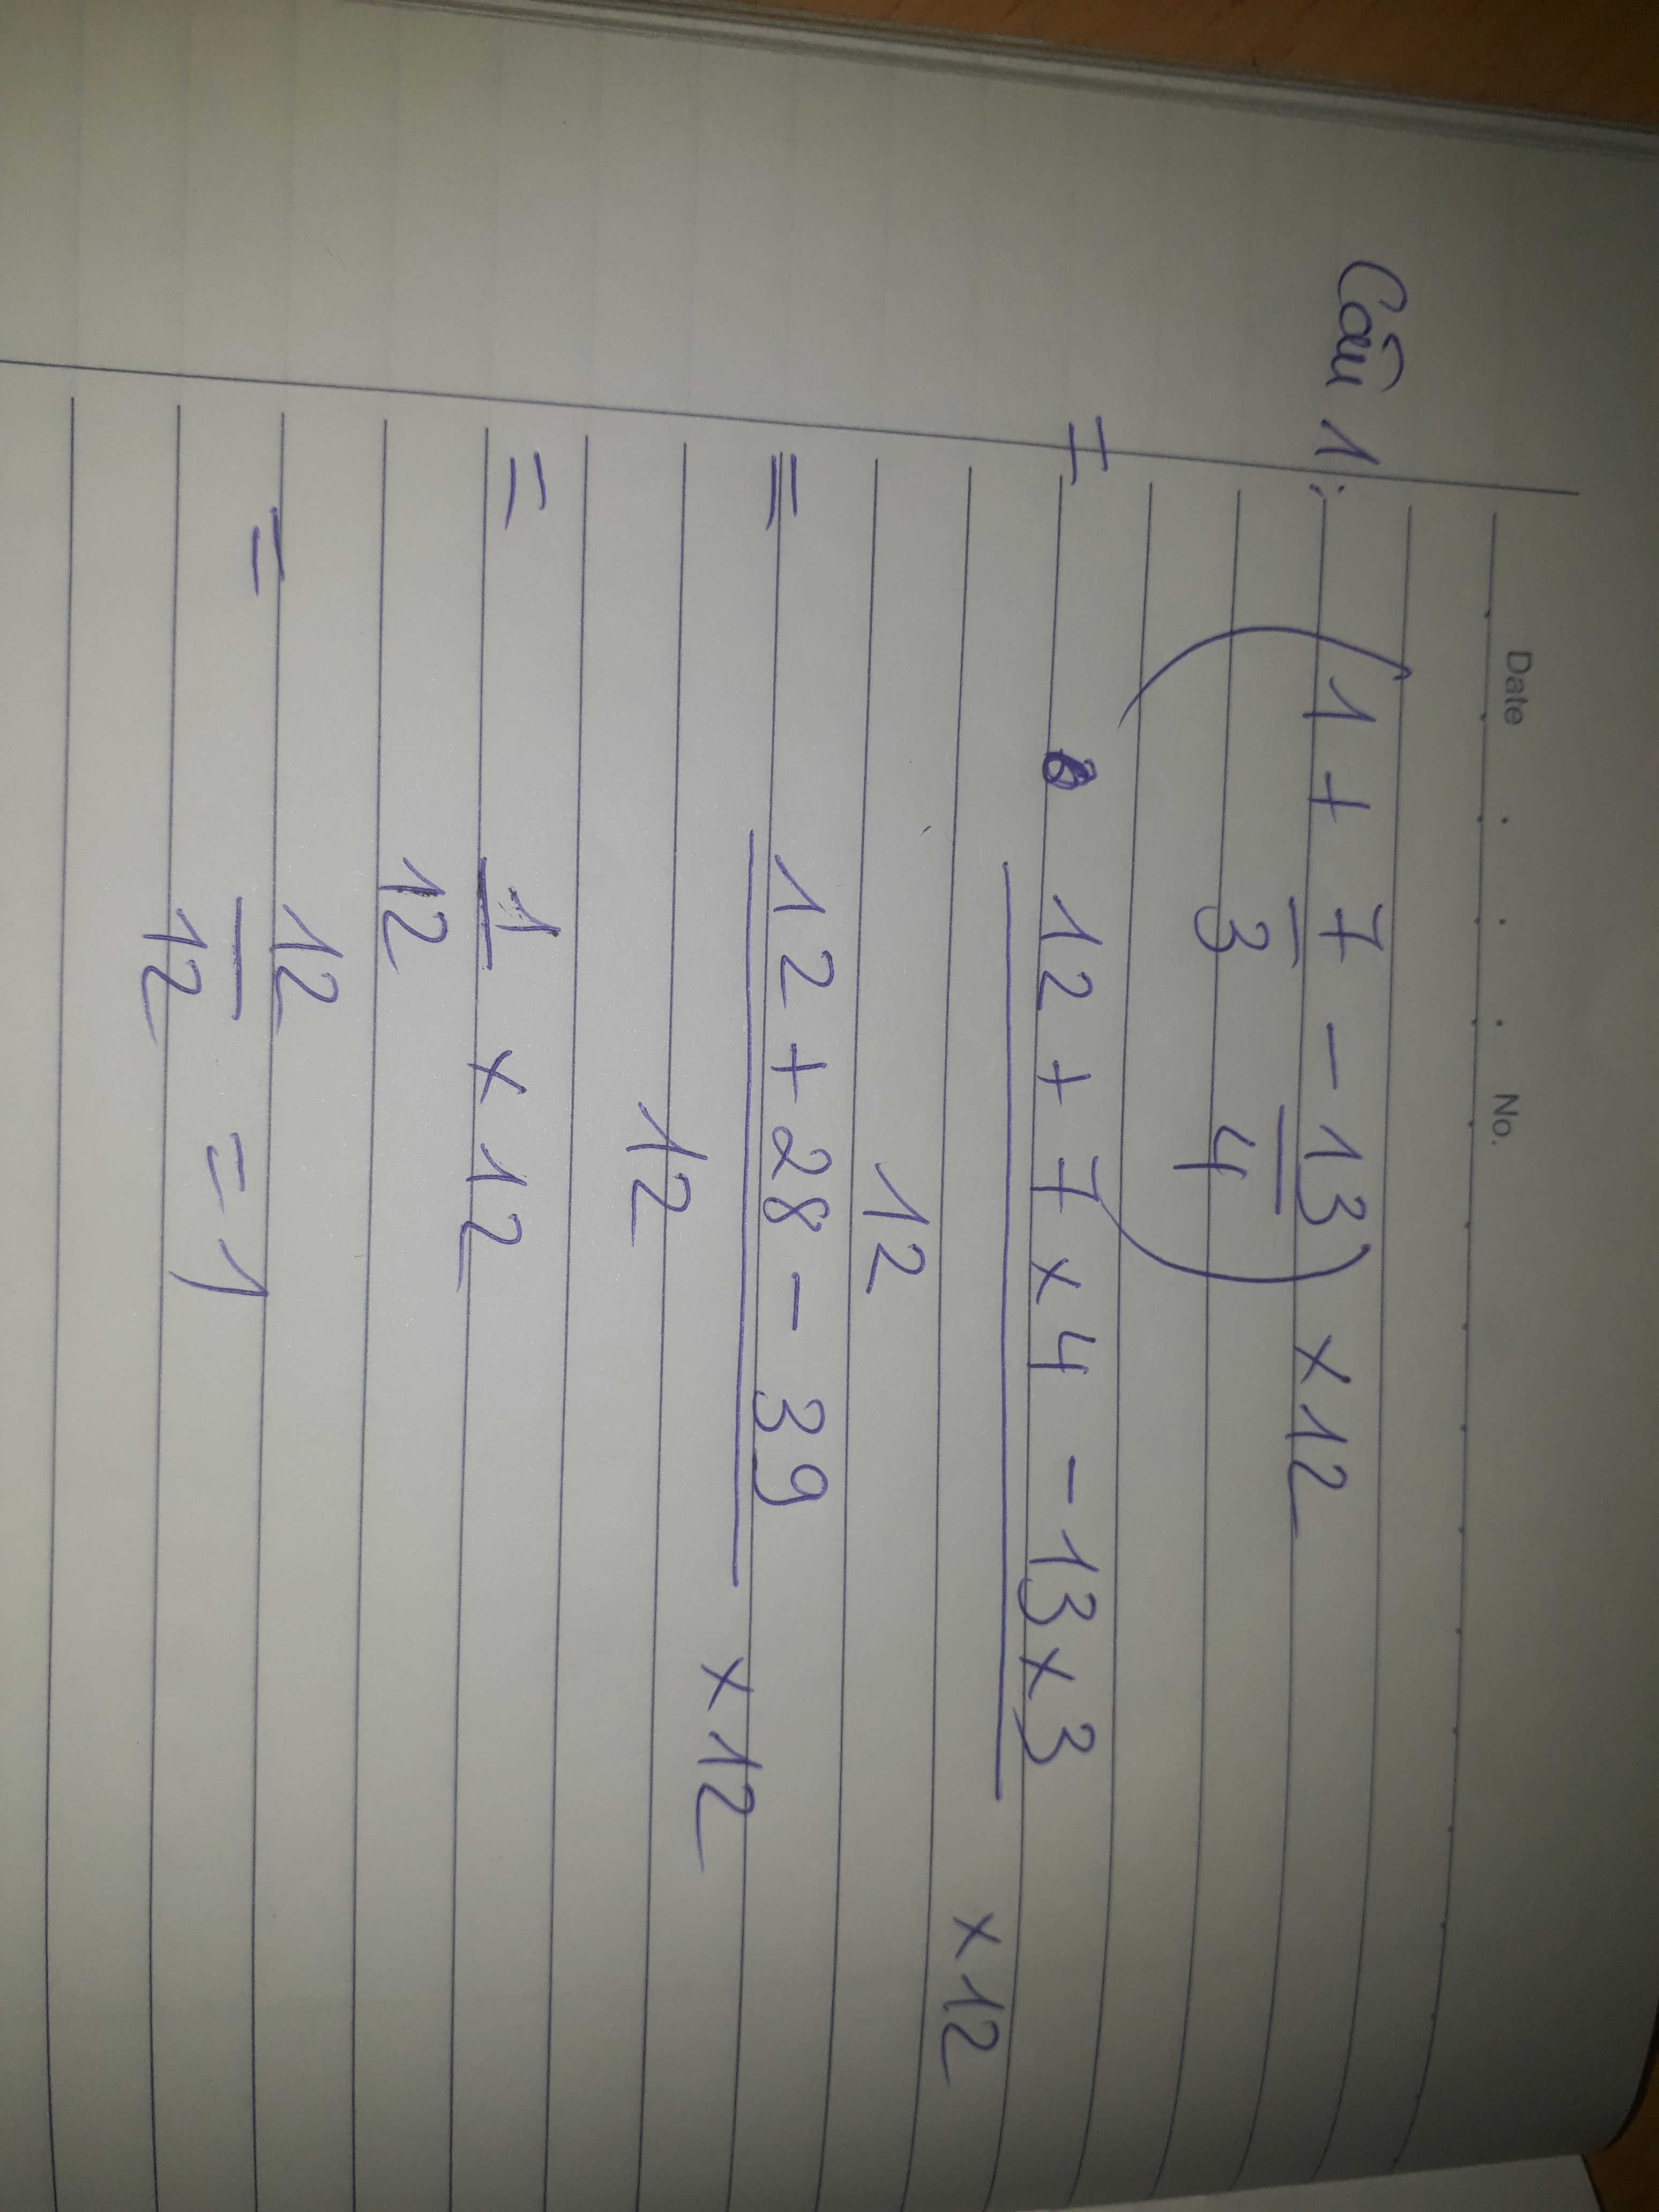 Date No.
Câu 1: (1 + 7/3 - 13/4) × 12
= 12 + 7 × 4 - 13 × 3 / 12 × 12
= 12 + 28 - 39 / 12 × 12
= 1/12 × 12
= 12/12 = 1